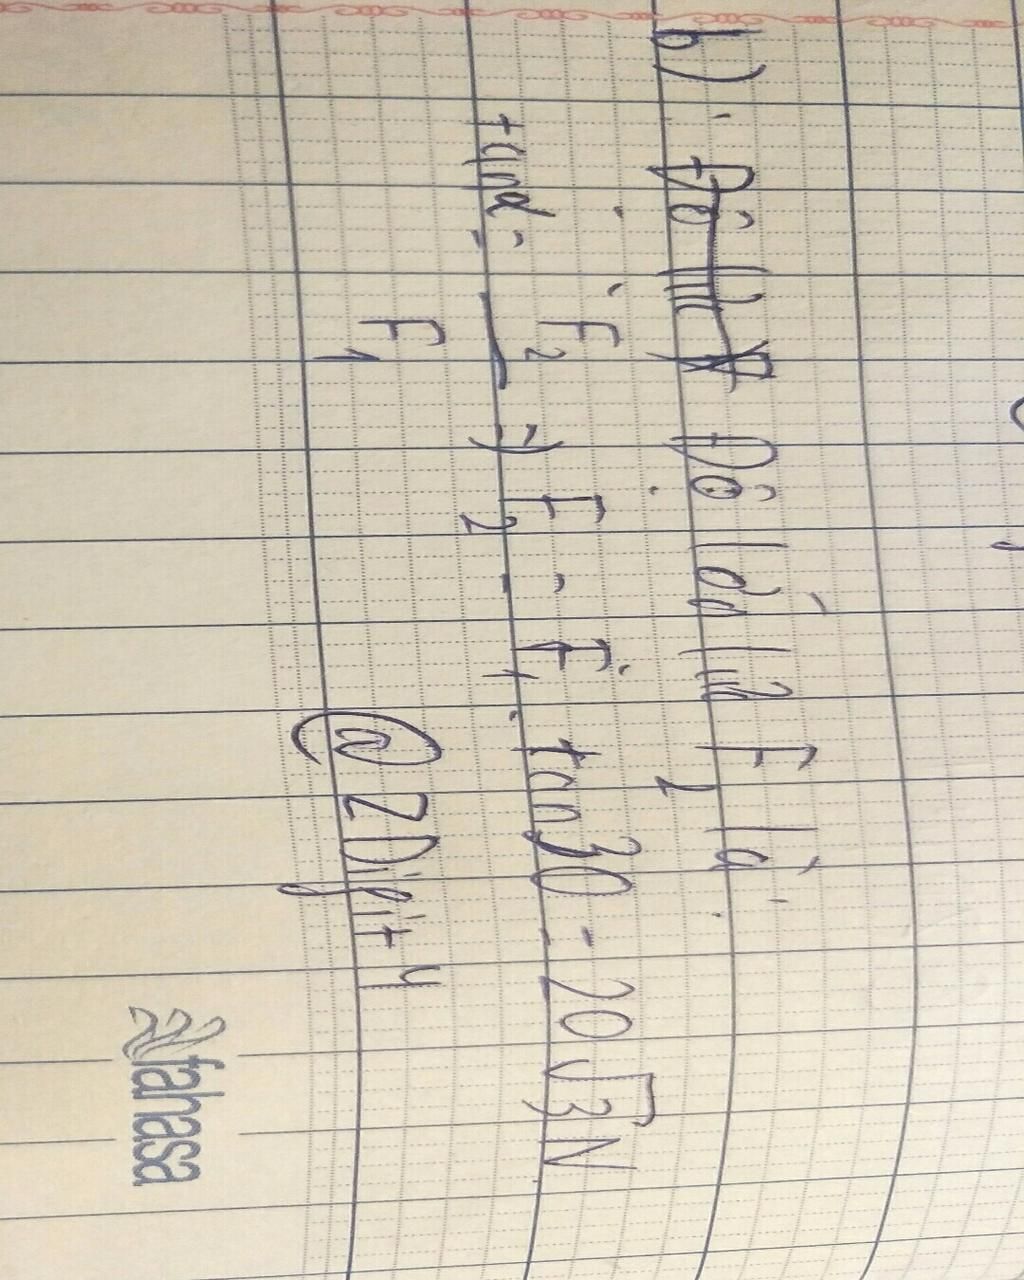 b) Độ lớn của F₂ là:
tanα = F₂ / F₁ => F₂ = F₁ . tan30 = 20√3N
@2Digit4
fahasa